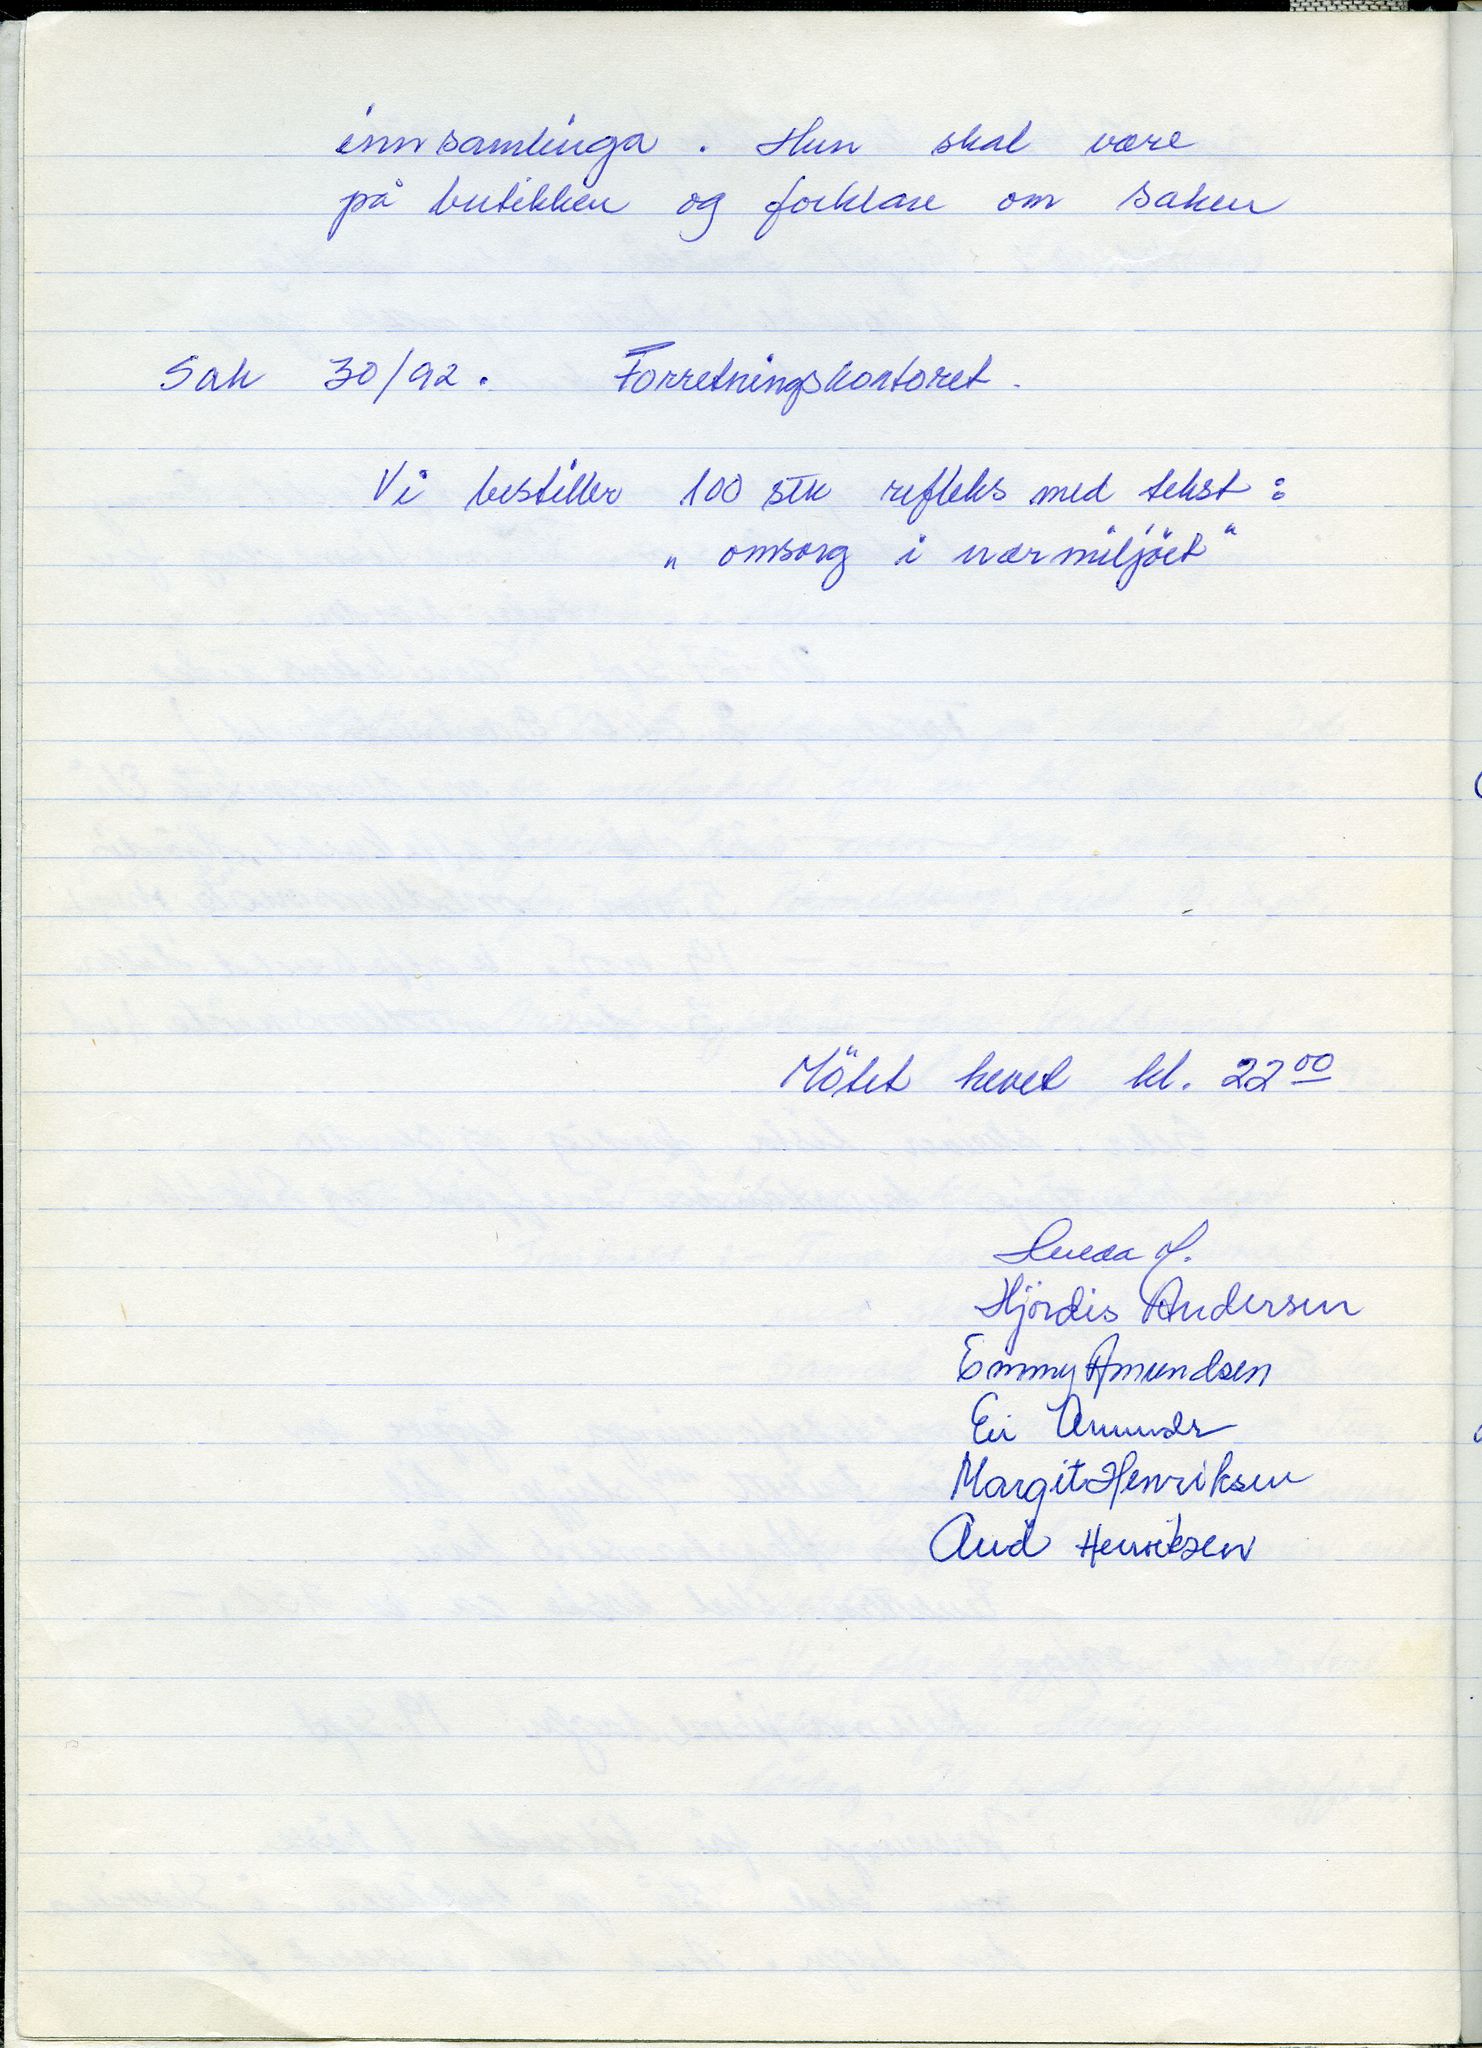 innsamlinga. Hun skal være
på butikken og forklare om saken
Sak 30/92. Forretningskontoret.
Vi bestiller 100 stk refleks med tekst:
„ omsorg i nærmiljöet"
Mötet hevet kl. 22 00
Hjördis Andersen
Emmy Amundsen
Margit Henriksen
Aud Henriksen